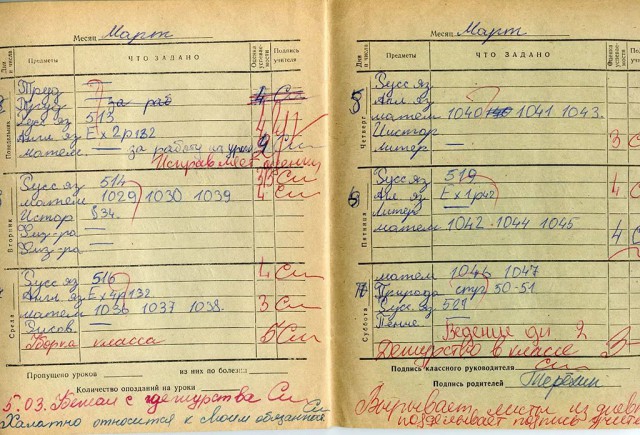 Месяц Март
Дни и числа Предметы ЧТО ЗАДАНО Оценка успеваемости Подпись учителя
Понедельник
Труд —
Труд — за раб 4 См
Русс яз 513 4
Англ яз Ex 2 p 132 4
матем — за работу на уроке 2 См
Исправляет оценки
Вторник
Русс яз 514 3 См
матем 1029 1030 1039 4 См
Истор §34.
Физ-ра —
Физ-ра —
Среда
Русс яз 516 4 См
Англ яз Ex 4 p 132
матем 1036 1037 1038. 3 См
Рисов —
Уборка класса 5 См
Пропущено уроков из них по болезни
Количество опозданий на уроки
5.03. Бежал с дежурства См
Халатно относится к своим обязанност См
Месяц Март
Дни и числа Предметы ЧТО ЗАДАНО Оценка успеваемости
Четверг
Русс яз
Англ яз
матем 1040 1041 1043.
Истор
Литер — 3
Пятница
Русс яз 519 4
Ан яз Ex 1 p 42
Литер —
матем 1042 1044 1045 4
Суббота
матем 1046 1047
Природа стр 50-51.
Русс яз 521
Пение — Ведение дн 2
Дежурство в классе 3
Подпись классного руководителя См
Подпись родителей
Вырывает листы из днев
подделывает подпись учите